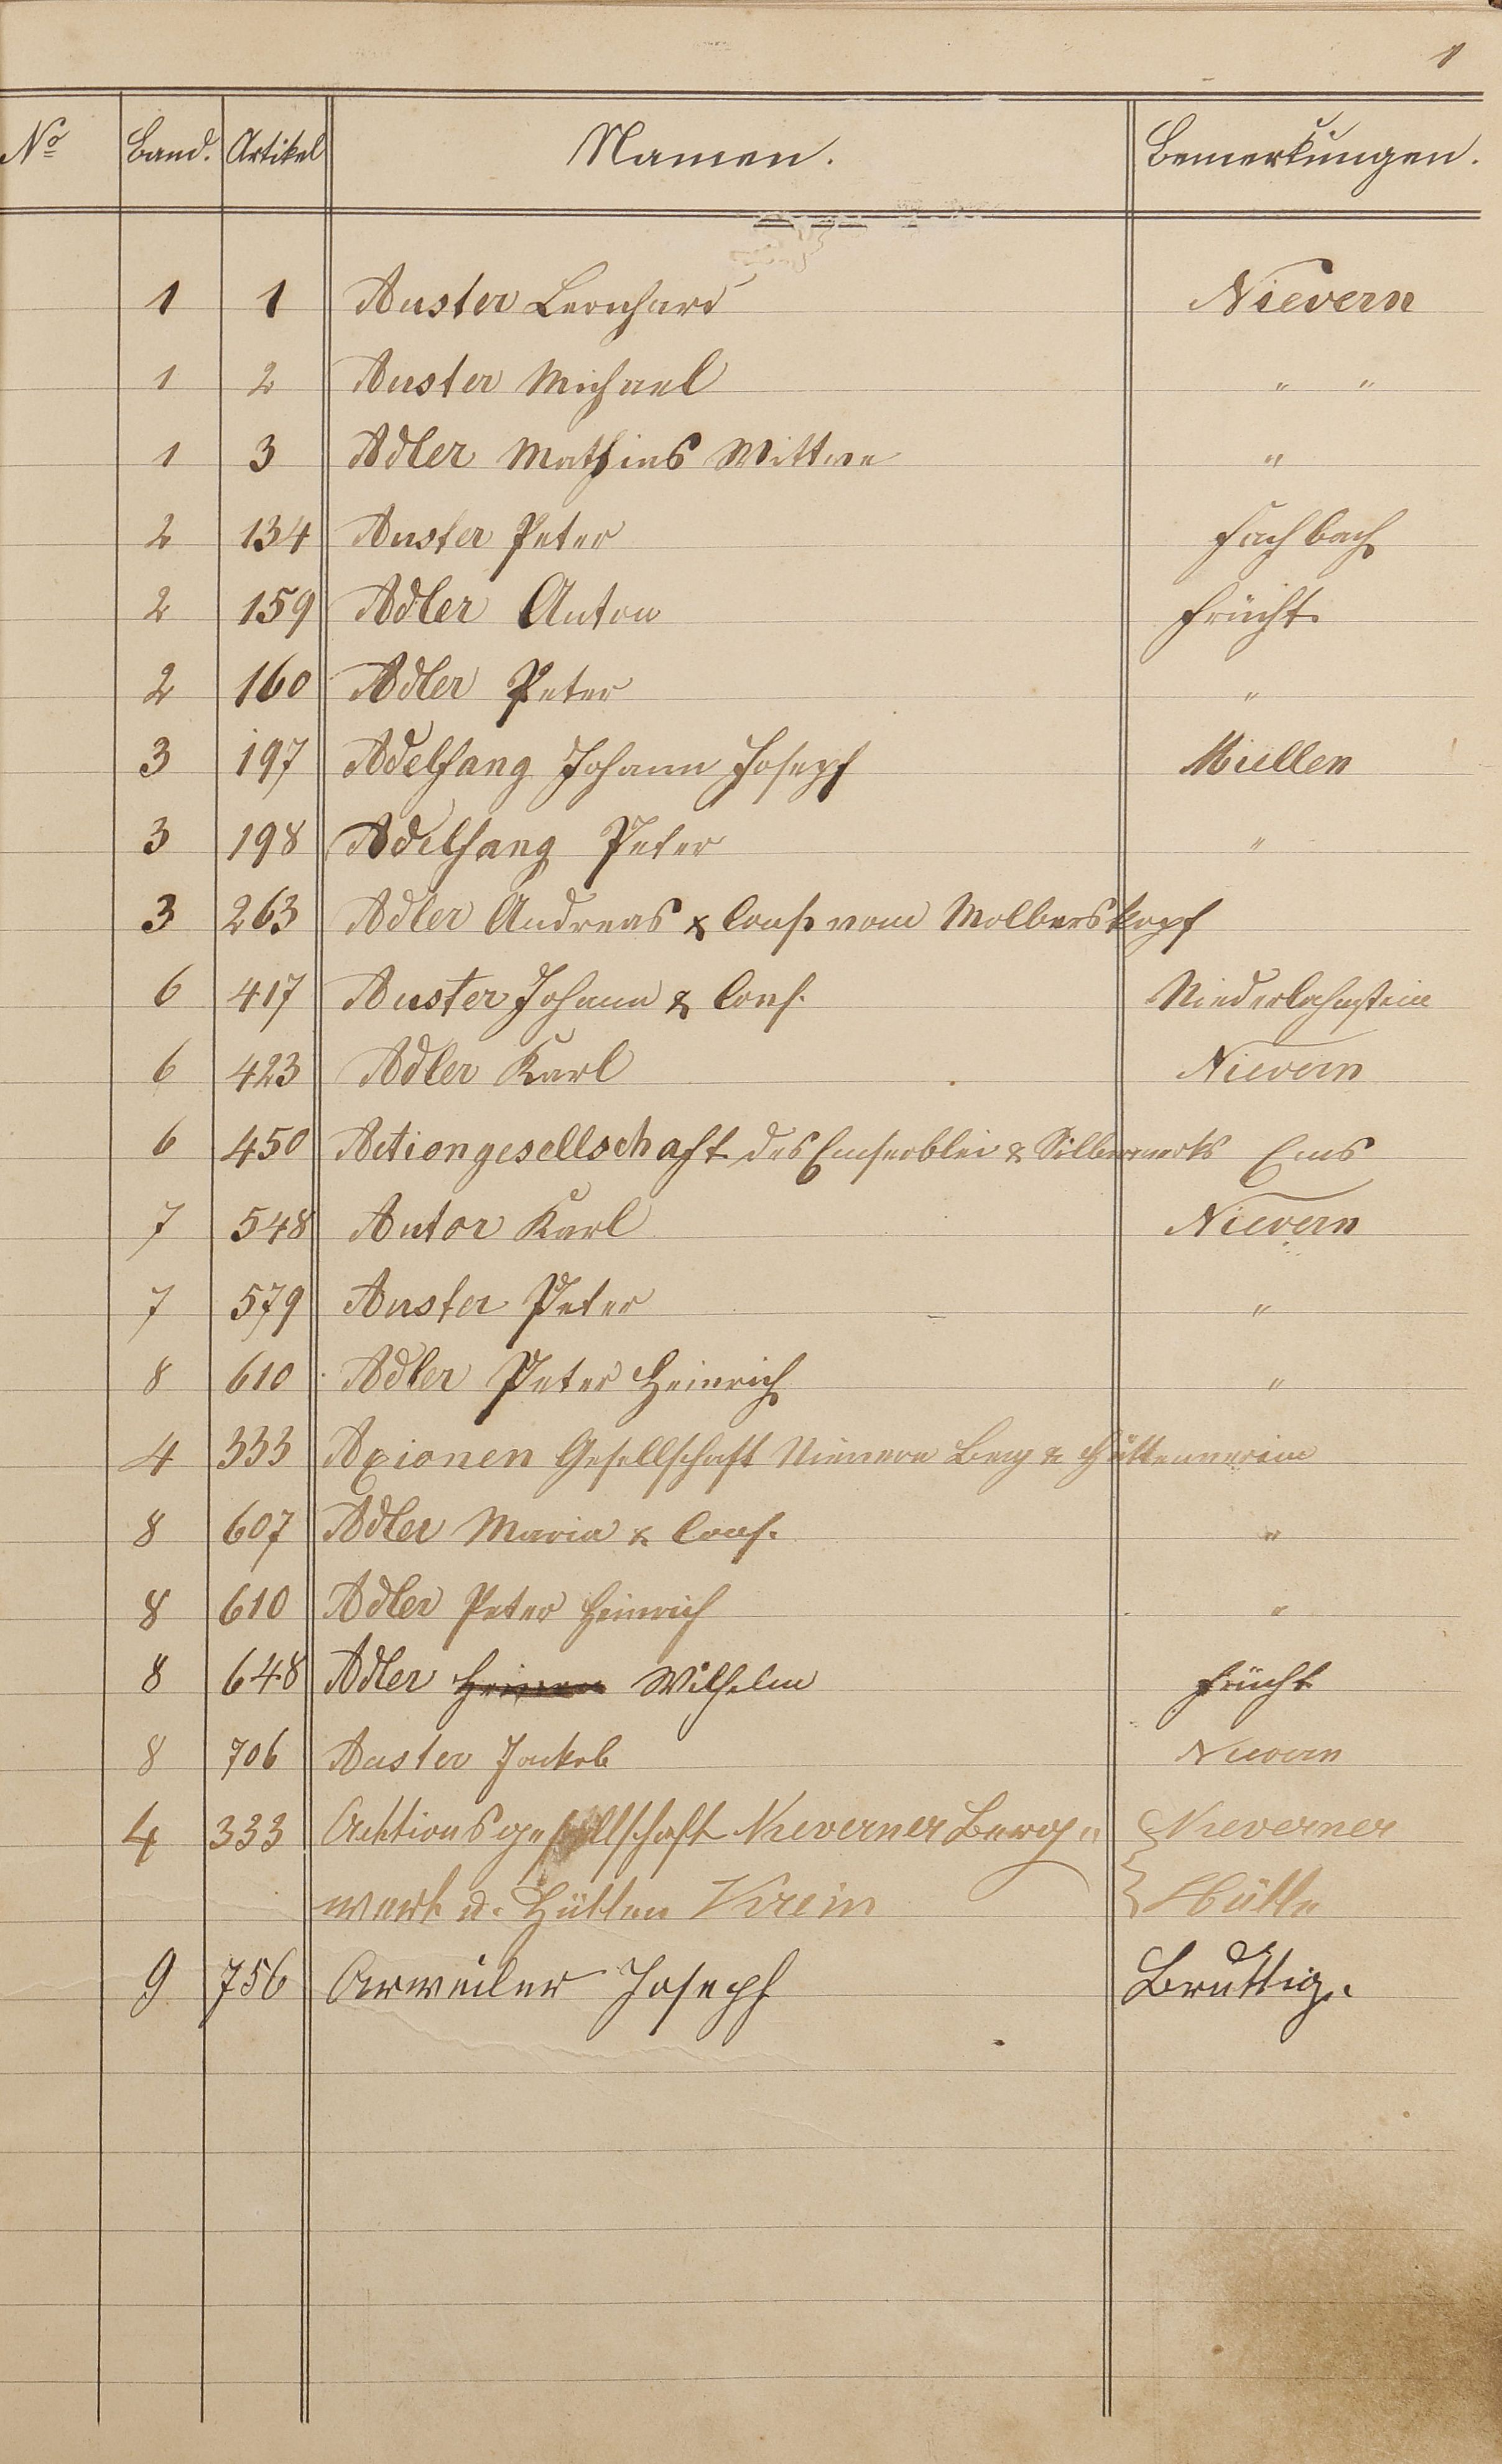 1
No Band. Artikel Namen. Bemerkungen.
1 1 Auster Leonhard Nievern
1 2 Auster Michael " "
1 3 Adler Mathias Wittwe "
2 134 Auster Peter Fachbach
2 159 Adler Anton Frücht
2 160 Adler Peter "
3 197 Adelfang Johann Joseph Miellen
3 198 Adelfang Peter "
3 263 Adler Andreas & Cons. vom Molberskopf
6 417 Auster Johann & Cons. Niederlahnstein
6 423 Adler Karl Nievern
6 450 Actiengesellschaft des Emserblei & Silberwerks Ems
7 548 Antor Karl Nievern
7 579 Auster Peter "
8 610 Adler Peter Heinrich "
4 333 Axionen Gesellschaft Nievern Berg & Hüttenverein
8 607 Adler Maria & Cons. "
8 610 Adler Peter Heinrich "
8 648 Adler Wilhelm Frücht
8 706 Auster Jackob Nievern
4 333 Acktionsgesellschaft Nieverner Berg" Nieverner
werk u. Hütten Verein Hütte
9 756 Arweiler Joseph Bruttig.